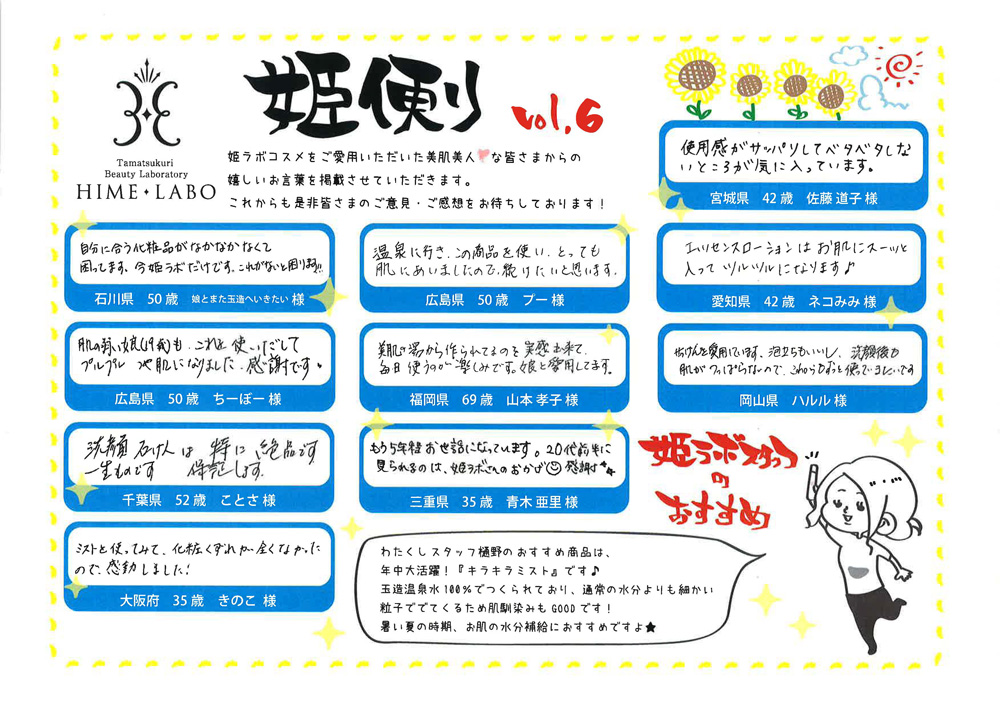 Tamatsukuri
Beauty Laboratory
HIME・LABO
姫便り
vol.6
姫ラボコスメをご愛用いただいた美肌美人な皆さまからの
嬉しいお言葉を掲載させていただきます。
これからも是非皆さまのご意見・ご感想をお待ちしております！
使用感がサッパリしてベタベタしな
いところが気に入っています。
宮城県 42歳 佐藤道子様
自分に合う化粧品がなかなかなくて
困ってます。今姫ラボだけです。これがないと困ります!!
石川県 50歳 娘とまた玉造へいきたい様
温泉に行き、この商品を使い、とっても
肌にあいましたので、続けたいと思います。
広島県 50歳 プー様
エッセンスローションはお肌にスーッと
入ってツルツルになります♪
愛知県 42歳 ネコみみ様
肌の弱い娘(19歳)も、これを使いだして
プルプル つや肌になりました。感謝です。
広島県 50歳 ちーぼー様
美肌の湯から作られてるのを実感出来て、
毎日使うのが楽しみです。娘と愛用してます。
福岡県 69歳 山本孝子様
せっけんを愛用しています。泡立ちもいいし、洗顔後も
肌がつっぱらないので、これからもずっと使っていきたいです
岡山県 ハルル様
洗顔石けんは特に絶品です
一生ものです 保証します。
千葉県 52歳 ことさ様
もう5年程お世話になっています。20代前半に
見られるのは、姫ラボさんのおかげ 感謝
三重県 35歳 青木亜里様
姫ラボスタッフ
の
おすすめ
ミストを使ってみて、化粧くずれが全くなかった
ので、感動しました!
大阪府 35歳 きのこ様
わたくしスタッフ樋野のおすすめ商品は、
年中大活躍！『キラキラミスト』です♪
玉造温泉水100％でつくられており、通常の水分よりも細かい
粒子ででてくるため肌馴染みもGOODです！
暑い夏の時期、お肌の水分補給におすすめですよ★